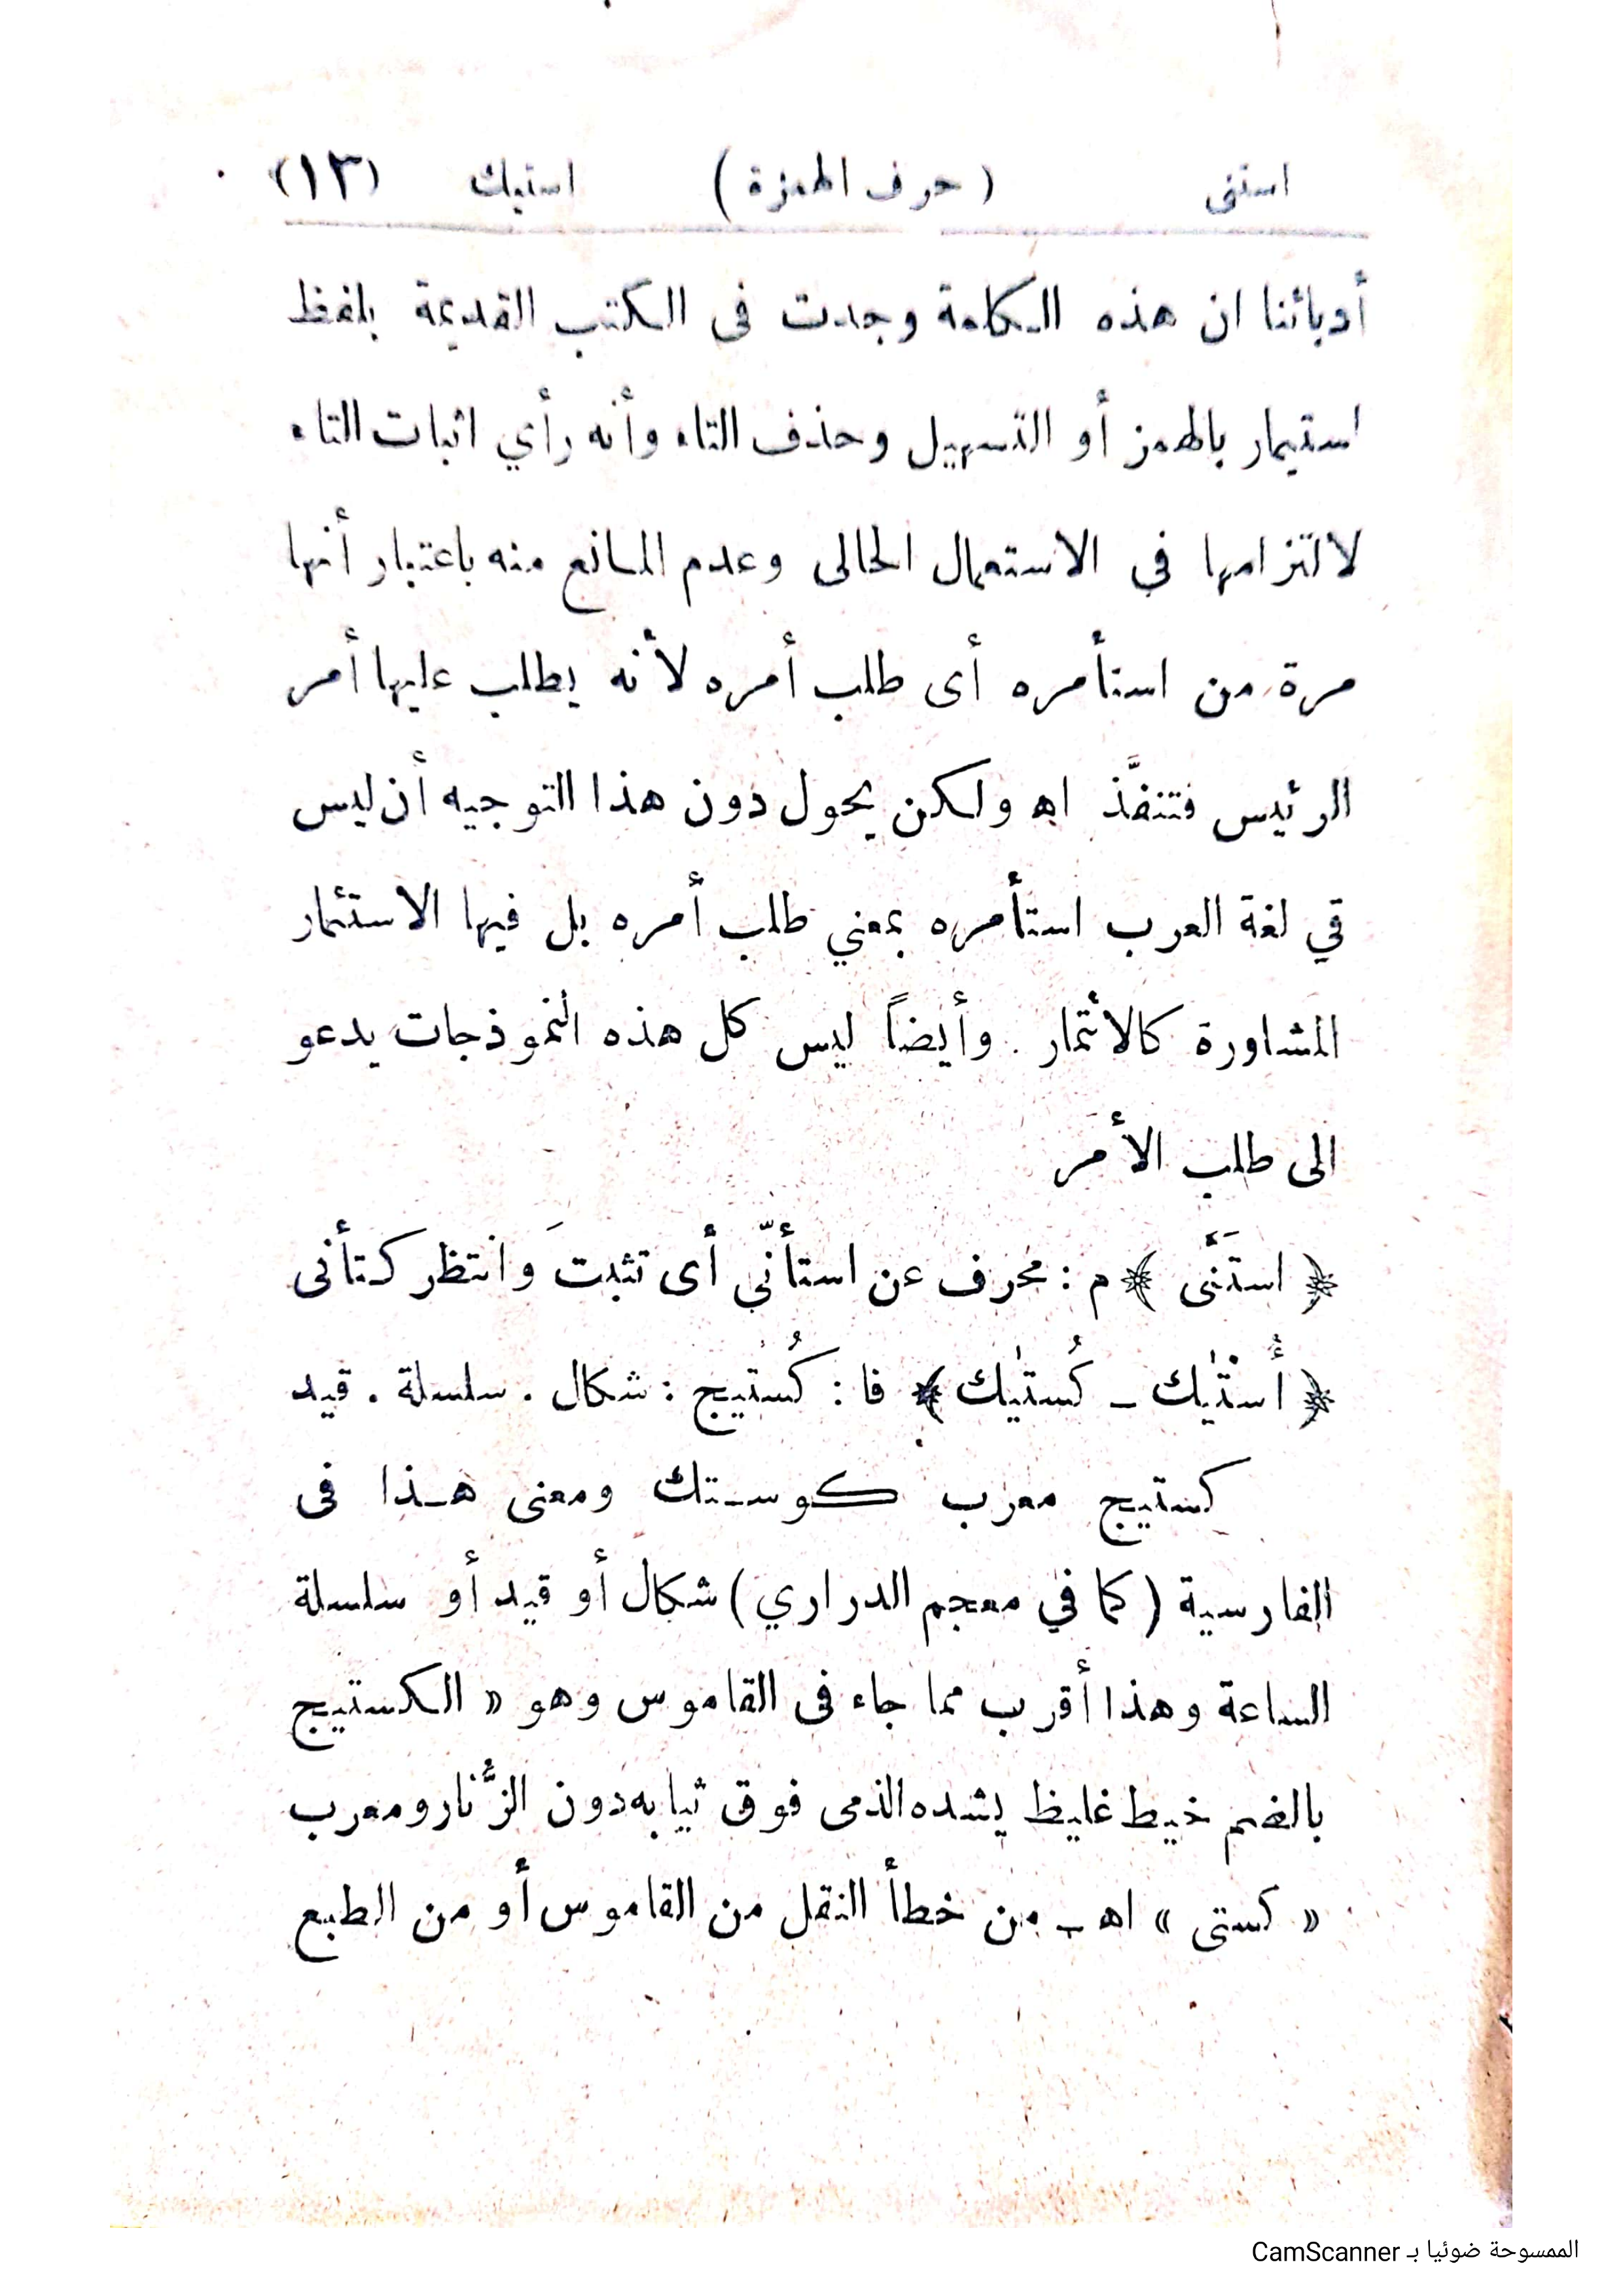 استنى ( حرف الهمزة ) استيك (١٣)
أدبائنا ان هذه الكلمة وجدت فى الكتب القديمة بلفظ
استيمار بالهمز أو التسهيل وحذف التاء وأنه رأي اثبات التاء
لالتزامها في الاستعمال الحالى وعدم المانع منه باعتبار أنها
مرة من استأمره أى طلب أمره لأنه يطلب عليها أمر
الرئيس فتنفَّذ اه ولكن يحول دون هذا التوجيه أن ليس
قي لغة العرب استأمره بمعني طلب أمره بل فيها الاستئمار
المشاورة كالائتمار . وأيضاً ليس كل هذه النموذجات يدعو
الى طلب الأمر
﴿ استَنَّى ﴾ م : محرف عن استأنّي أى تثبتَ وانتظر كتأنى
﴿ أُسْتَيك ـ كُستَيك ﴾ فا : كُستيج : شكال . سلسلة . قيد
كستيج معرب كوستك ومعنى هذا فى
الفارسية ( كما في معجم الدراري ) شكال أو قيد أو سلسلة
الساعة وهذا أقرب مما جاء فى القاموس وهو « الكستيج
بالضم خيط غليظ يشده الذمى فوق ثيابه دون الزُّنار ومعرب
« كستى » اهـ ـ من خطأ النقل من القاموس أو من الطبع
الممسوحة ضوئيا بـ CamScanner